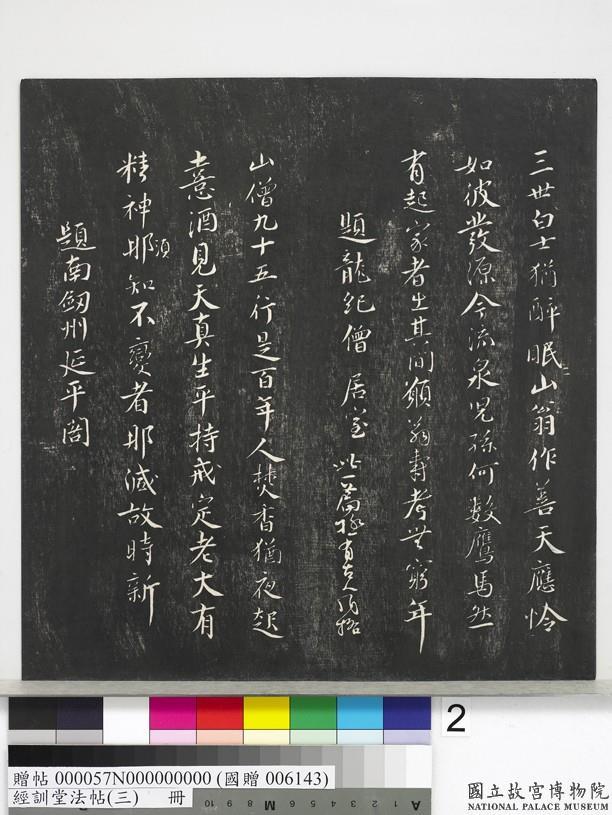 三世白士猶醉眠山翁作善天應怜
如彼發源今流泉兒孫何數鷹馬然
有起家者出其間願翁壽考世窮年
題龍紀僧居室
山僧九十五行是百年人焚香猶夜起
憙酒見天真生平持戒定老大有
精神須知不變者那減故時新
題南劒州延平閣
2
贈帖 000057N000000000 (國贈 006143)
經訓堂法帖(三) 冊
國立故宮博物院
NATIONAL PALACE MUSEUM